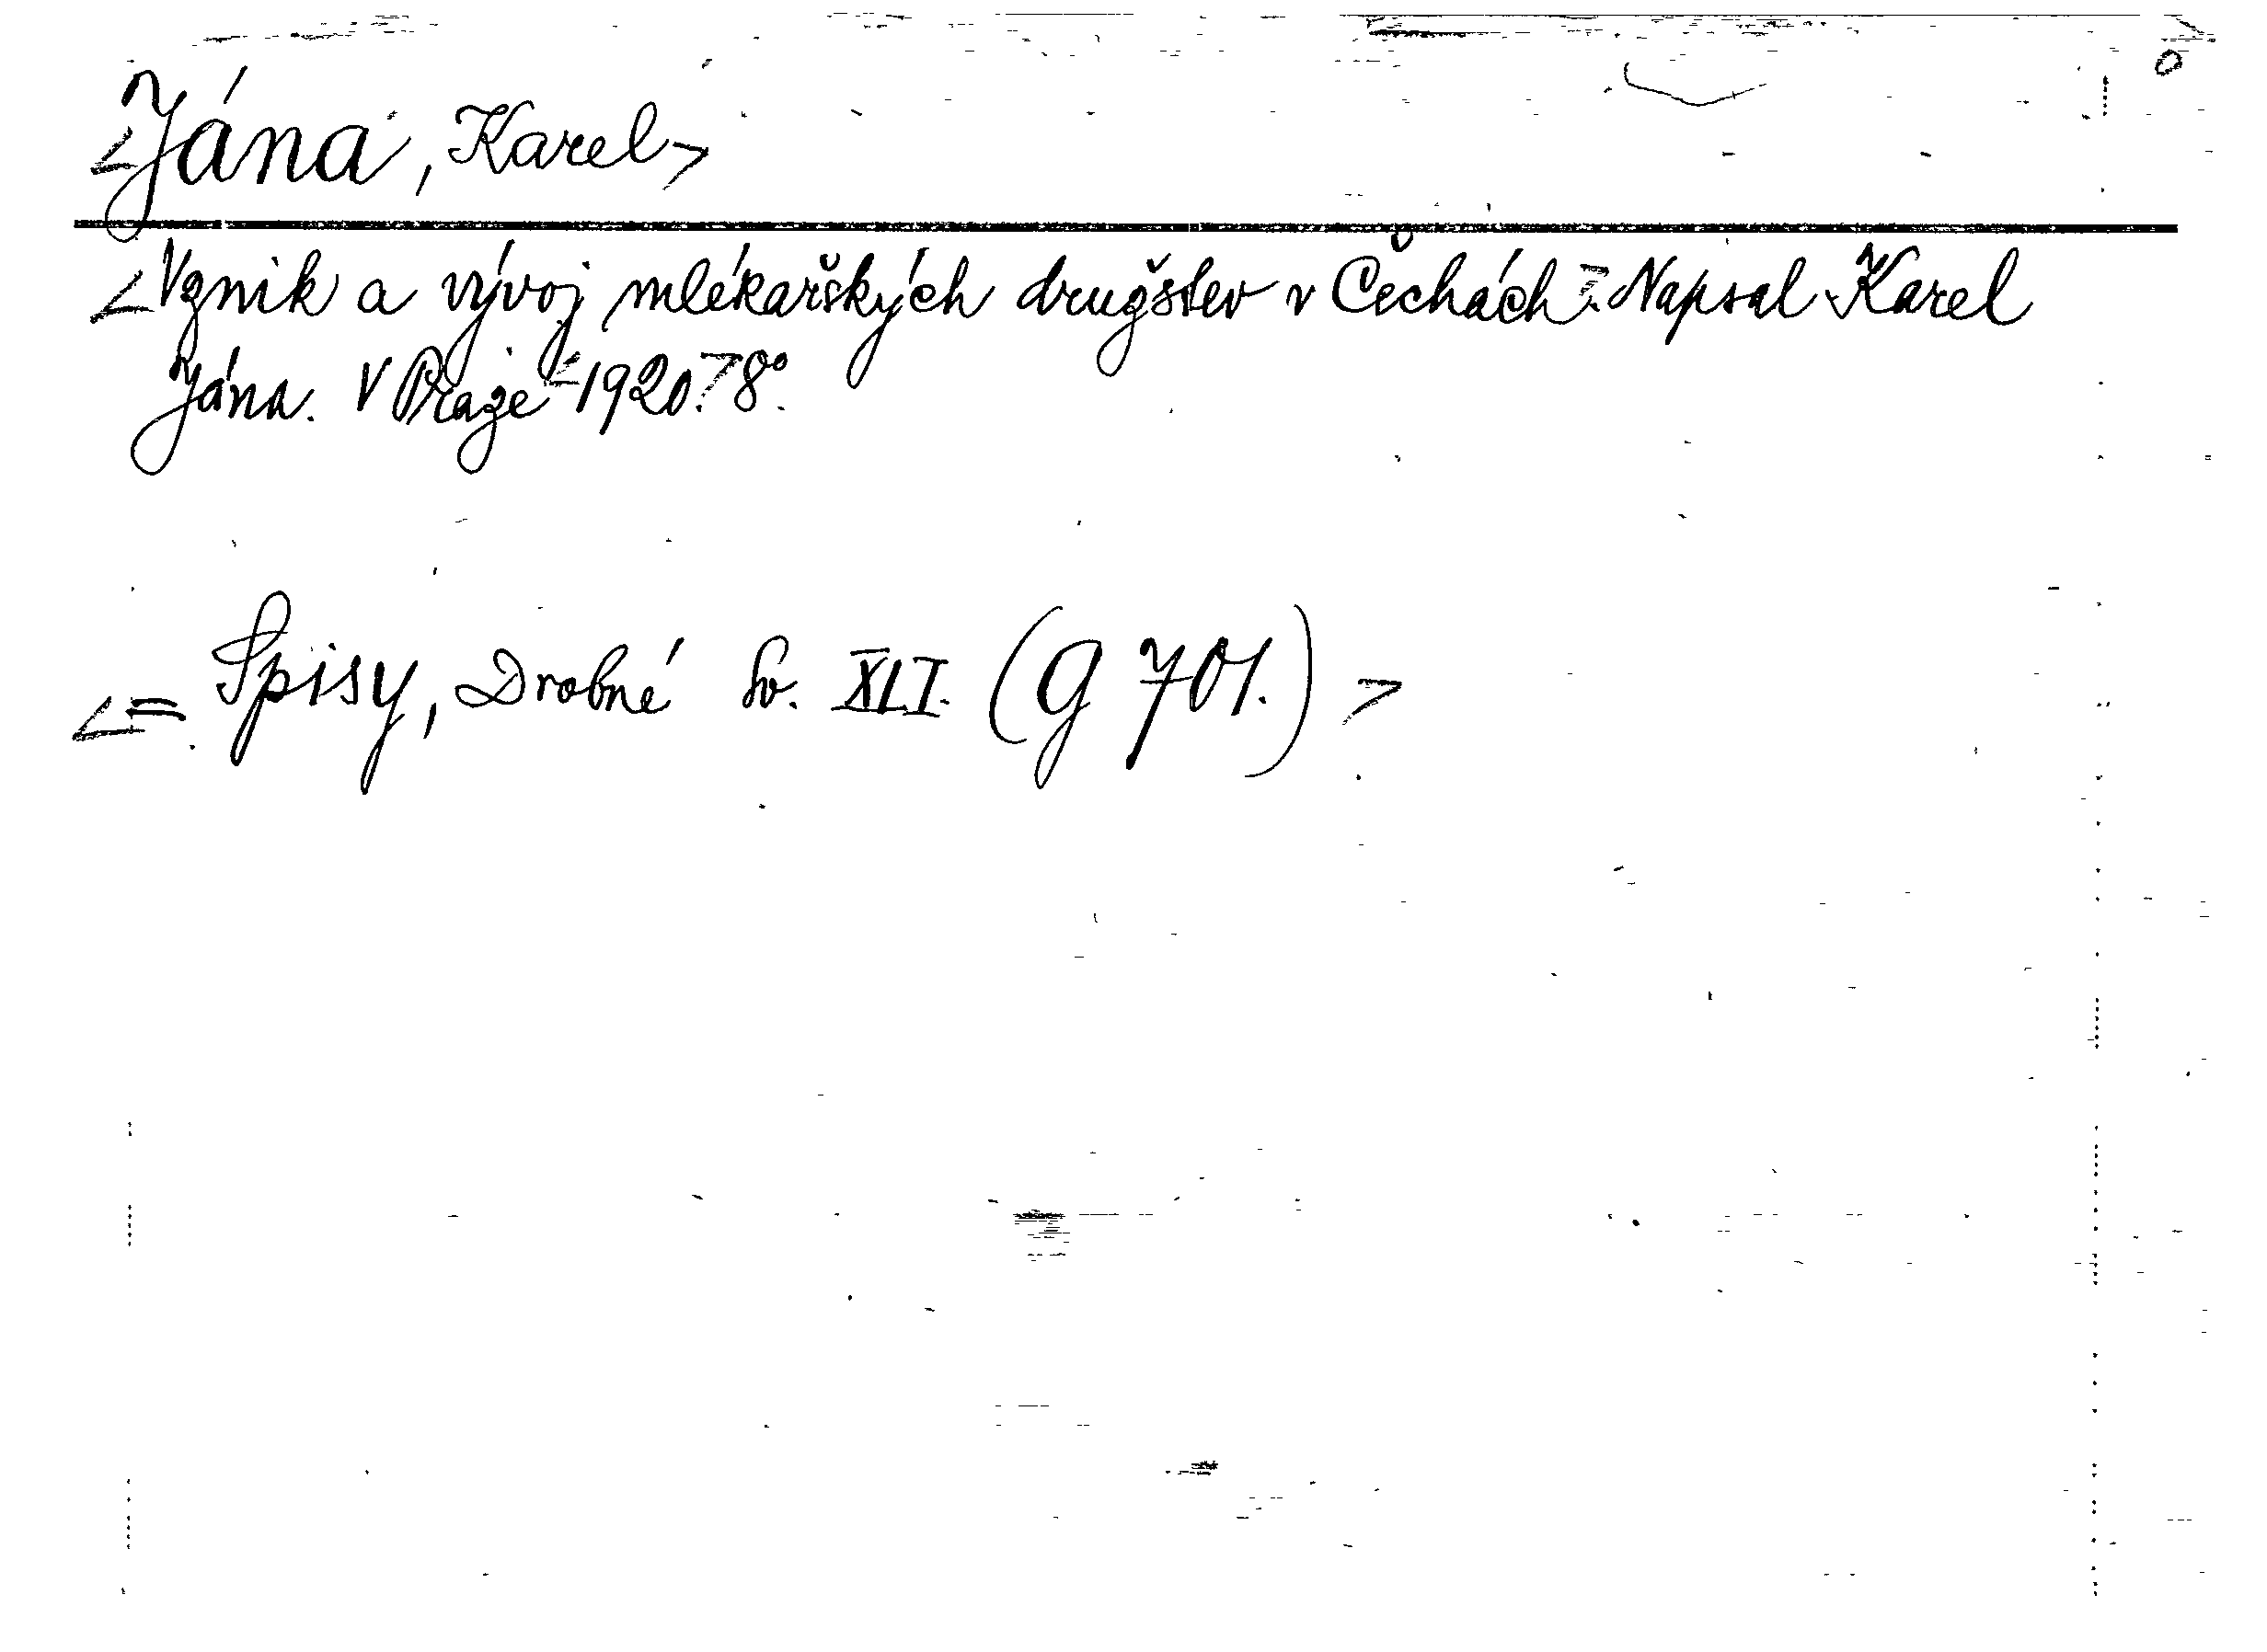 <Jána, Karel>
<Vznik a vývoj mlékařských družstev v Čechách>. Napsal Karel
Jána. V Praze <1920.> 8°.
<= Spisy, Drobné Sv. XLI. (G 701.) >